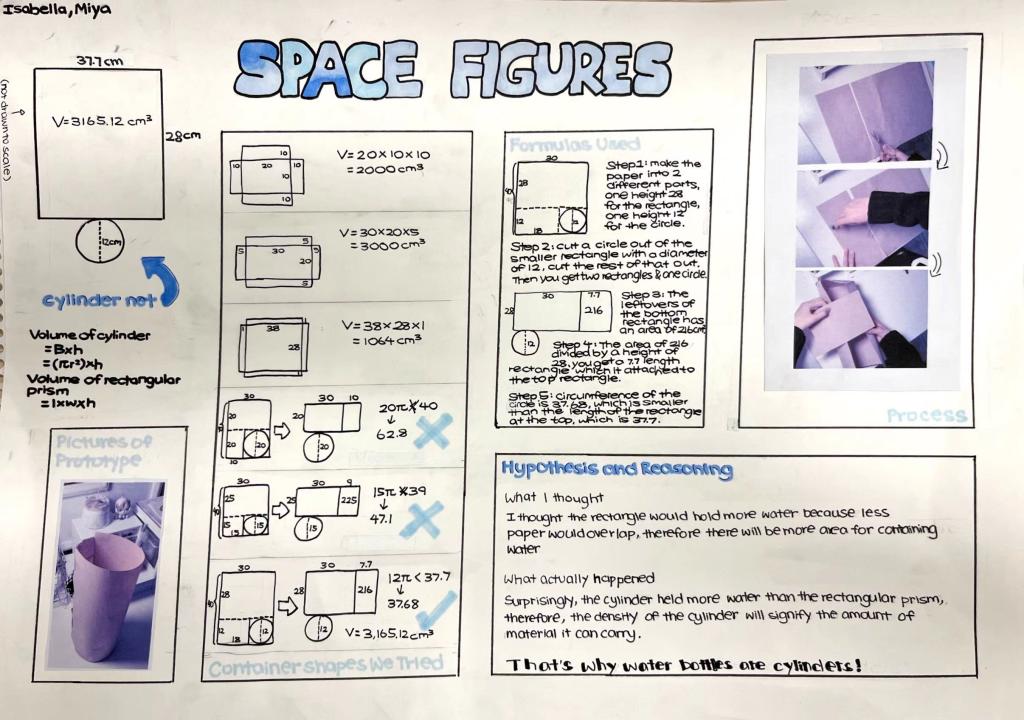 Isabella, Miya
SPACE FIGURES
37.7cm
(not drawn to scale)
V=3165.12 cm³
28cm
12cm
cylinder net
Volume of cylinder
=Bxh
=(πr²)xh
Volume of rectangular
prism
=lxwxh
Pictures of
Prototype
10
10 20 10
10
10
V=20x10x10
=2000cm³
5
5 30 5
20
5
V=30x20x5
=3000cm³
38
28
V=38x28x1
=1064cm³
30
20
20 20
10
30 10
20
20
20π 40
↓
62.8
30
25
40
15 15
15
30 9
25 225
15
15π 39
↓
47.1
30
40 28
12 12
18
30 7.7
28 216
12
12π < 37.7
↓
37.68
V=3,165.12cm³
Container shapes We Tried
Formulas Used
30
28
40
12 12
18
Step 1: make the
paper into 2
different parts,
one height 28
for the rectangle,
one height 12
for the circle.
Step 2: cut a circle out of the
smaller rectangle with a diameter
of 12, cut the rest of that out.
Then you get two rectangles & one circle.
30 7.7
28 216
12
Step 3: The
leftovers of
the bottom
rectangle has
an area of 216cm²
Step 4: The area of 216
divided by a height of
28, you get a 7.7 length
rectangle, which it attached to
the top rectangle.
Step 5: circumference of the
circle is 37.68, which is smaller
than the length of the rectangle
at the top, which is 37.7.
Process
Hypothesis and Reasoning
What I thought
I thought the rectangle would hold more water because less
paper would overlap, therefore there will be more area for containing
water
What actually happened
Surprisingly, the cylinder held more water than the rectangular prism,
therefore, the density of the cylinder will signify the amount of
material it can carry.
That's why water bottles are cylinders!